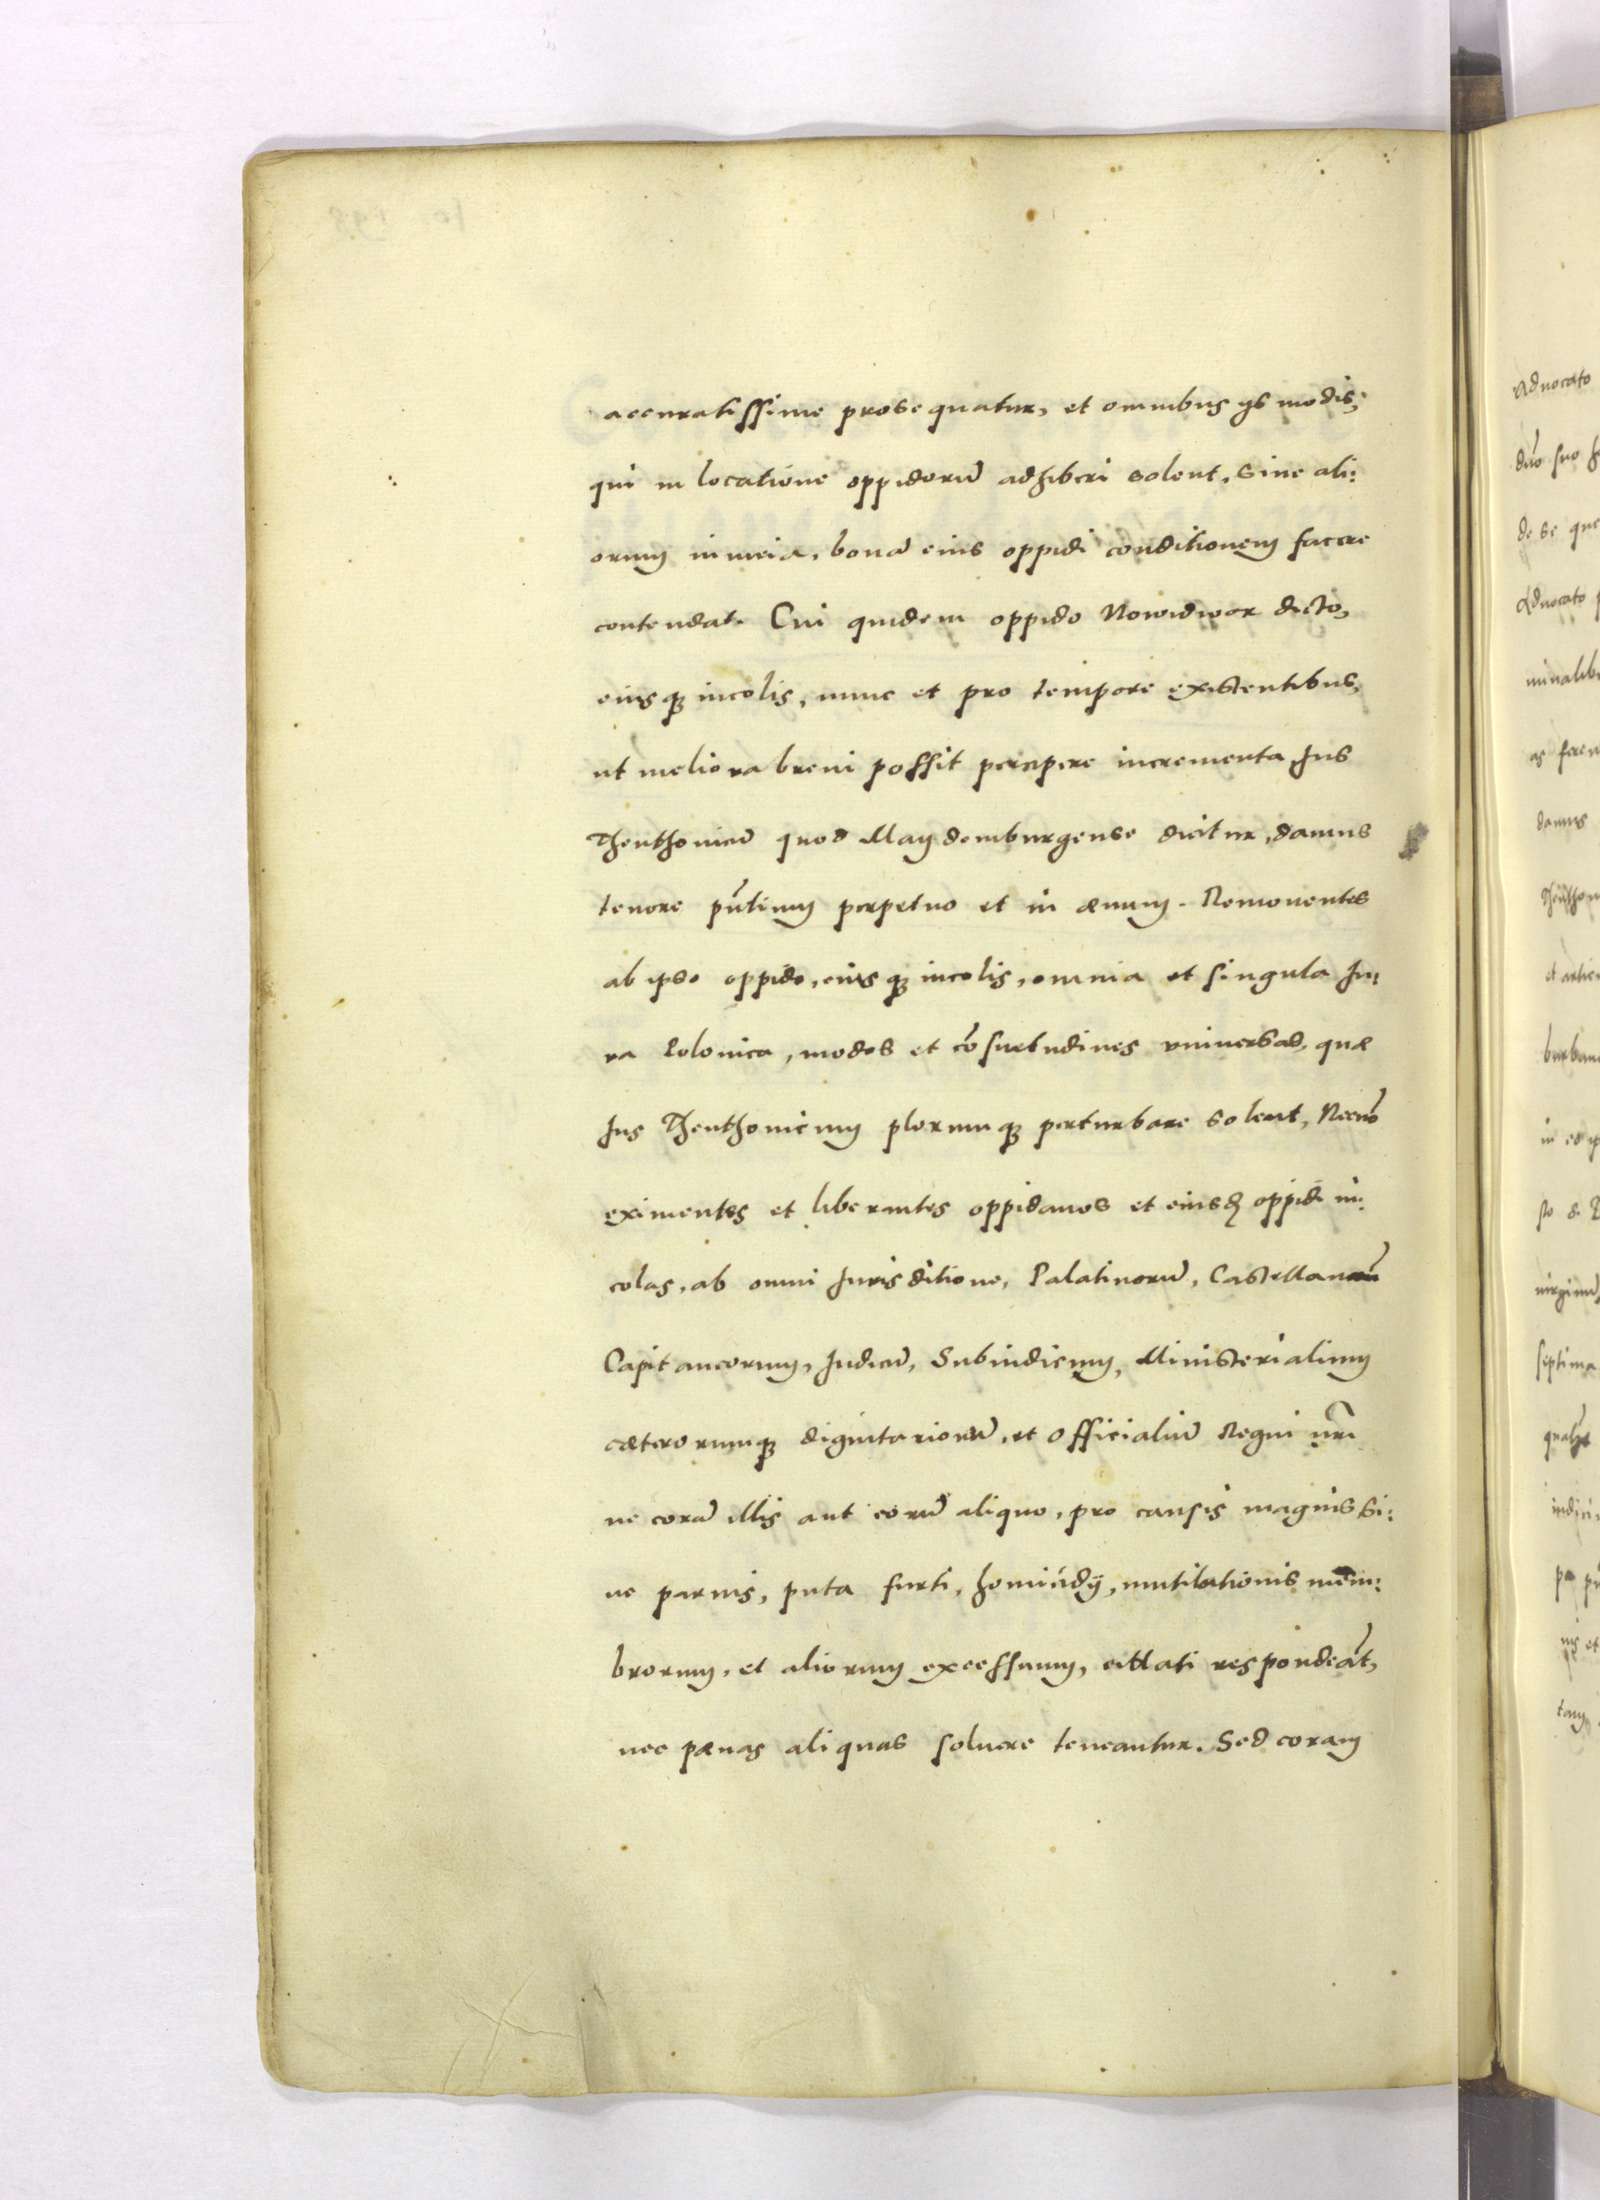 accuratissime prosequatur, et omnibus ijs modis,
qui in locatione oppidorũ adhiberi solent, sine ali:
orum iniuria, bonã eius oppidi conditionem facere
contendat. Cui quidem oppido Nowidwor dicto,
eiusqꝫ incolis, nunc et pro tempore existentibus,
ut meliora breui possit percipere incrementa Jus
Theuthonicũ quod Maydemburgense dicitur, damus
tenore pñtium perpetuo et in æuum. Remouentes
ab ipso oppido, eiusqꝫ incolis, omnia et singula Ju:
ra Polonica, modos et cõsuetudines vniuersas, quæ
Jus Theuthonicum plerumqꝫ perturbare solent, Necnõ
eximentes et liberantes oppidanos et eiusd. oppidi in:
colas, ab omni Jurisditione, Palatinorũ, Castellanorũ
Capitaneorum, Judicũ, Subiudicum, Ministerialium
cæterorumqꝫ dignitariorũ, et Officialiũ Regni nr̃i
ne corã illis aut eorũ aliquo, pro causis magnis si:
ue paruis, puta furti, homicidij, mutilationis mem:
brorum, et aliorum excessuum, cittati respondeãt,
nec pænas aliquas soluere teneantur. Sed coram
Aduocato
dño suo
de se
Aduocato
minalib
as feren
damus
Theuthon
et artic
burban
in eo
virginũ
septima
iudici
tam